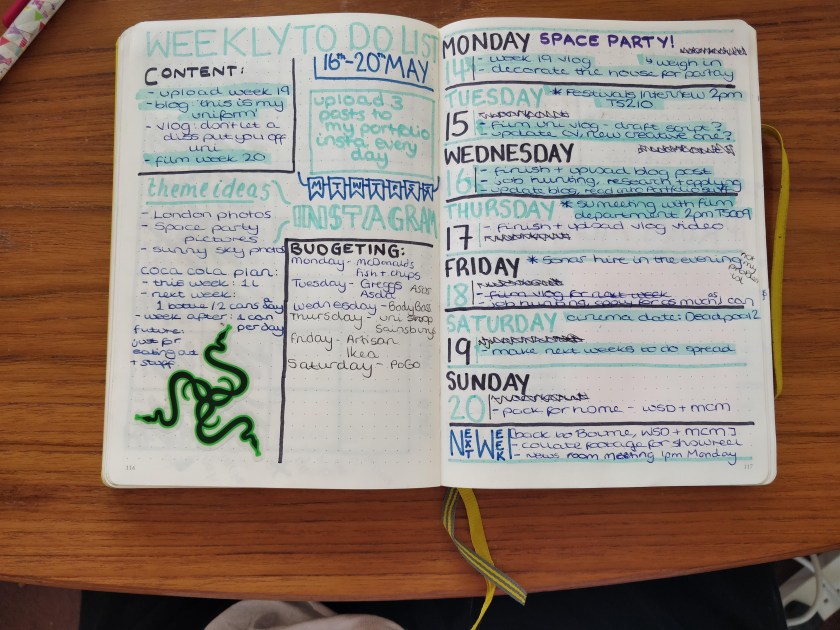 WEEKLY TO DO LIST
16th-20th MAY
CONTENT:
- upload week 19
- blog 'this is my
uniform'
- vlog don't let a
diss put you off
uni
- film week 20
upload 3
posts to
my portfolio
insta every
day
M T W T F S S
INSTAGRAM
theme ideas
- London photos
- Space party
pictures
- sunny sky photos
coca cola plan:
- this week: 1L
- next week:
1 bottle/2 cans a day
- week after: 1 can
per day
future:
just for
eating out
+ stuff
BUDGETING:
Monday - McDonalds
fish + chips
Tuesday - Greggs Asos
Asda
Wednesday - BodyBoss
Thursday - uni shop
Sainsburys
Friday - Artisan
Ikea
Saturday - PoGo
116
MONDAY SPACE PARTY!
14 - week 19 vlog * weigh in
- decorate the house for partay
TUESDAY * Festivals interview 2pm
TS210
15
- film uni vlog - draft script?
- update CV, new creative one?
WEDNESDAY
16 - finish + upload blog post
- job hunting, research + applying
- update blog, read into portfolio stuff
THURSDAY * su meeting with film
department 2pm TS009
17 - finish + upload vlog video
FRIDAY * sonar hire in the evening
18
- film vlog for next week
- job hunting, apply for as much as I can
SATURDAY cinema date: Deadpool 2
19
- make next weeks to do spread
SUNDAY
20
- pack for home - WSD + MCM
NEXT WEEK [back to Bourne, WSD + MCM]
- collate footage for showreel
- news room meeting 1pm Monday
117